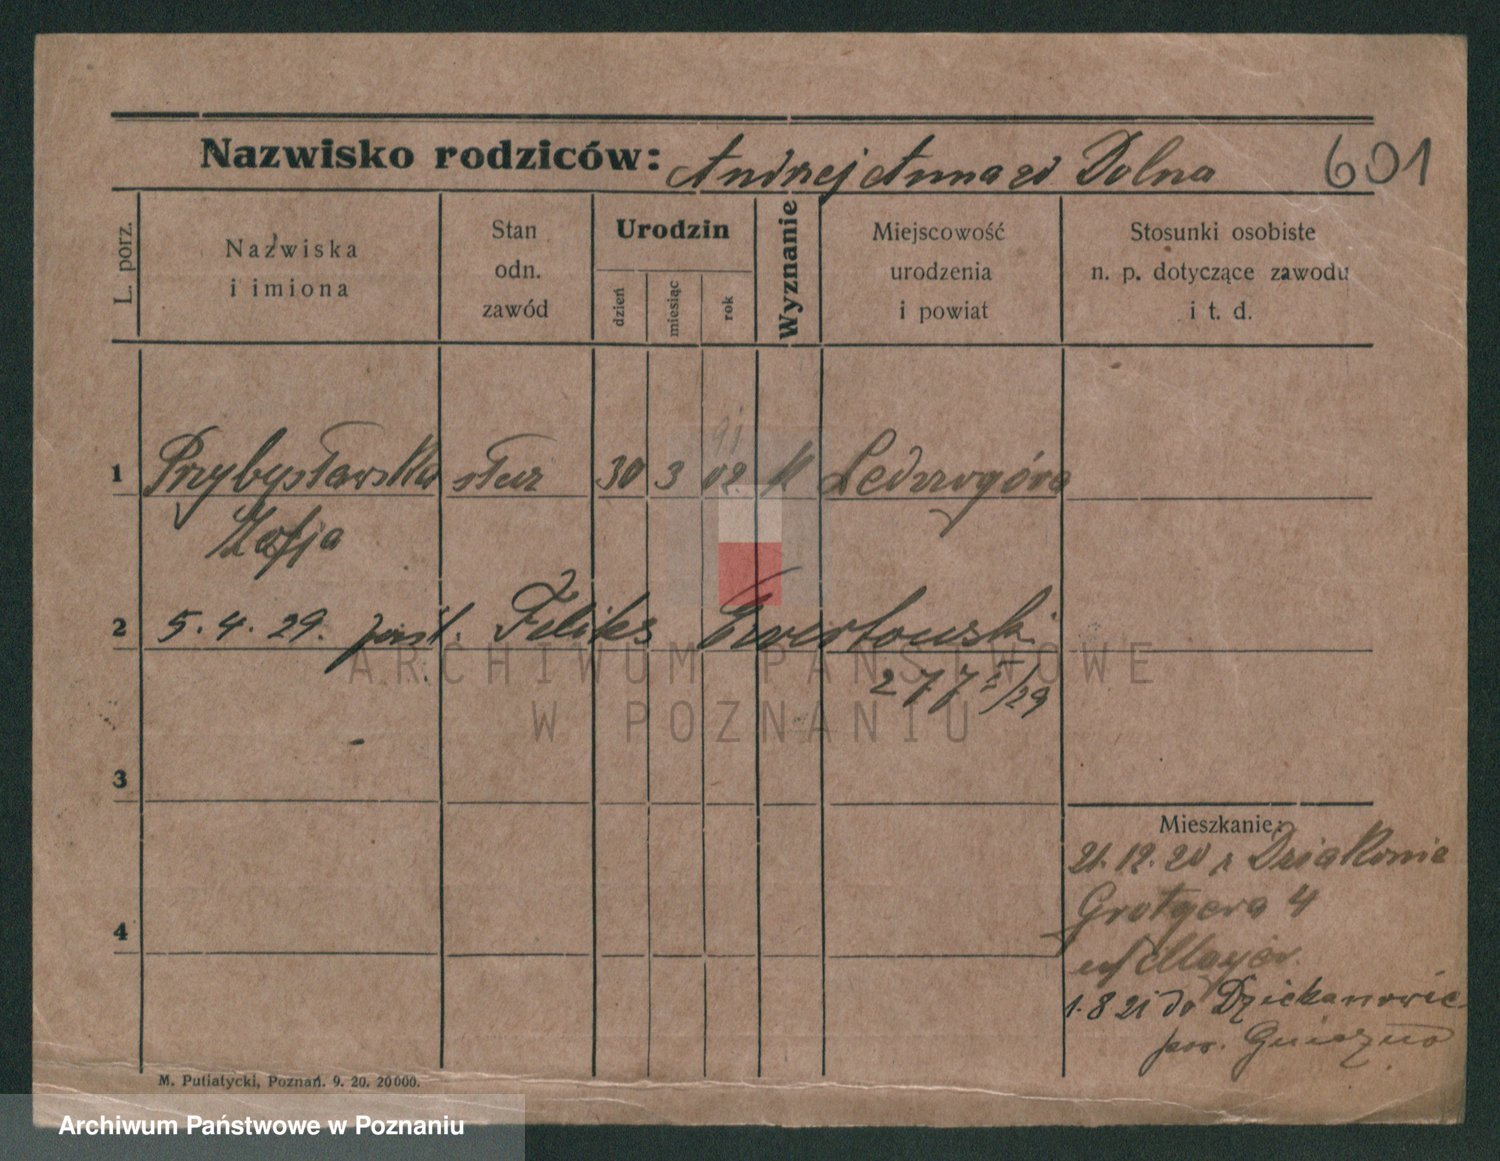 Nazwisko rodziców: Andrzej Anna zd Dolna 601
L. porz.
Nazwiska i imiona
Stan odn. zawód
Urodzin
dzień
miesiąc
rok
Wyznanie
Miejscowość urodzenia i powiat
Stosunki osobiste n. p. dotyczące zawodu i t. d.
1 Przybysławska służ 30 3 02 k Lednogóra
Zofja
2 5. 4. 29. Feliks Ewertowski
277 /29
3
Mieszkanie:
21. 12. 20 z Dziakonie
Grotgera 4
4
u/ Mayer
1. 8 21 do Dziekanowic
pow. Gniezno
M. Putiatycki, Poznań. 9. 20. 20000.
ARCHIWUM PAŃSTWOWE
W POZNANIU
Archiwum Państwowe w Poznaniu